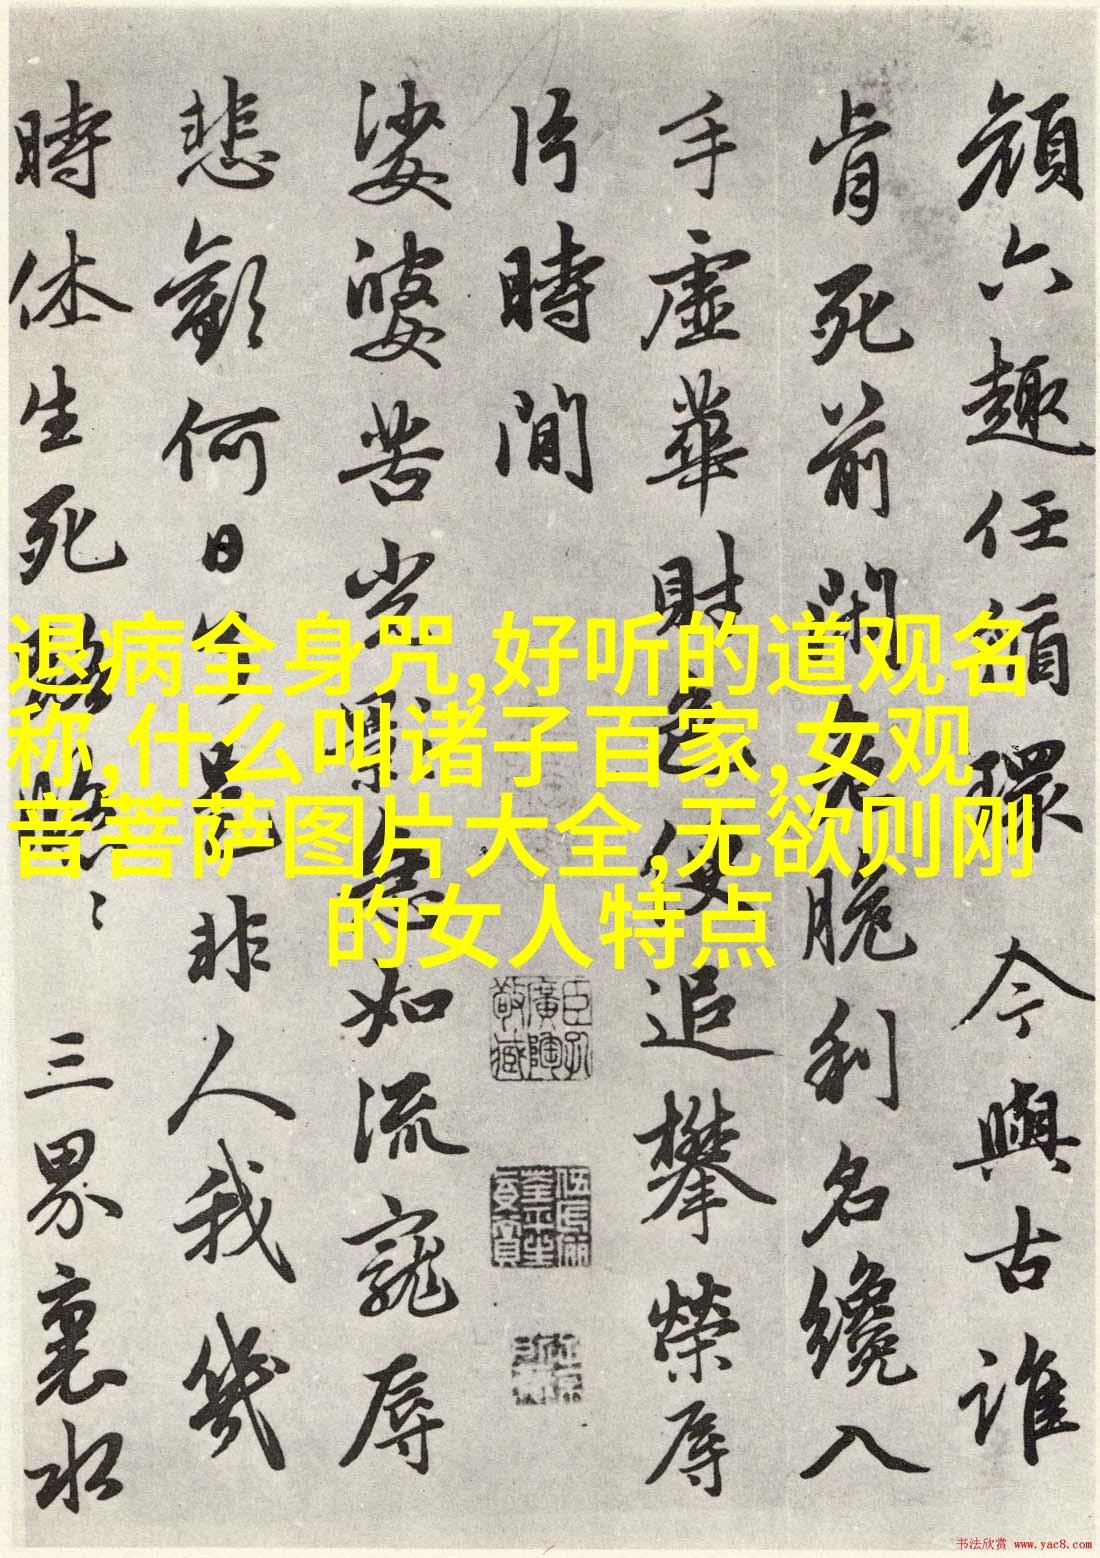 顔六趣任循環今與古誰
肯死前閑危脆利名纔入
手虛華財色促追攀榮辱
片時間
娑婆苦光影急如流寵辱
悲歡何日了是非人我幾
時休生死路悠
三界裏水
退病全身咒,好听的道观名
称,什么叫诸子百家,女观
音菩萨图片大全,无欲则刚
的女人特点
书法欣赏 www.yac8.com